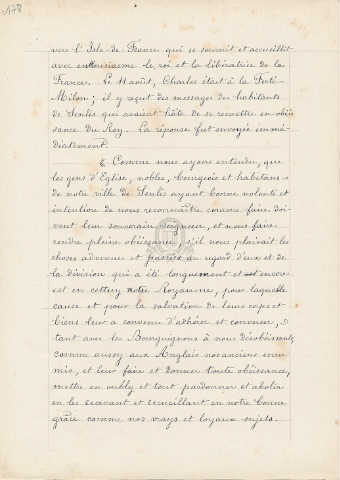 178
vers l'Isle de France qui se soumit et accueillit
avec enthousiasme le roi et la libératrice de la
France. Le 11 août, Charles était à la Ferté-
Milon; il y reçut des messages des habitants
de Senlis qui avaient hâte de se remettre en obéis
sance du Roy. La réponse fut envoyée immé-
diatement.
"Comme nous ayons entendu, que
les gens d'Eglise, nobles, bourgeois et habitans
de notre ville de Senlis ayant bonne volonté et
intention de nous reconnaître comme faire doi-
vent leur souverain seigneur, et nous faire
rendre pleine obéissance, s'il nous plaisait les
choses advenues et passées au regard d'eux et de
la division qui a été longuement et est encore
est en cettuy notre Royaume, pour laquelle
cause et pour la salvation de leurs corps et
biens leur a convenu d'adhérer et converser,
tant avec les Bourguignons à nous désobéissants,
comme aussy aux Anglais nos anciens enne
mis, et leur faire et donner toute obéissance,
mettre en oubly et tout pardonner et abolir
en les recevant et recueillant en notre bonne
grâce comme nos vrays et loyaux sujets.